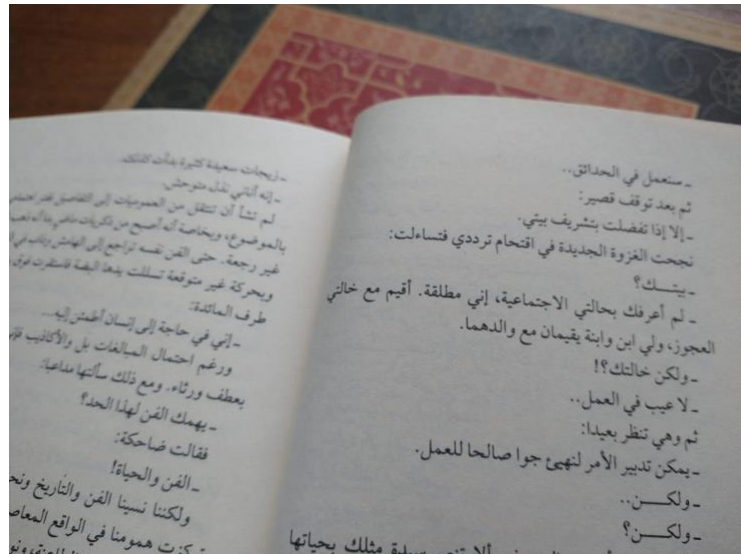 ـ سنعمل في الحدائق..
ثم بعد توقف قصير:
ـ إلا إذا تفضلت بتشريف بيتي.
نجحت الغزوة الجديدة في اقتحام ترددي فتساءلت:
ـ بيتــك؟
ـ لم أعرفك بحالتي الاجتماعية، إني مطلقة. أقيم مع خالتي
العجوز، ولي ابن وابنة يقيمان مع والدهما.
ـ ولكن خالتك؟!
ـ لا عيب في العمل..
ثم وهي تنظر بعيدا:
ـ يمكن تدبير الأمر لنهيئ جوا صالحا للعمل.
ـ ولكــن..
ـ ولكــن؟
سيدة مثلك بحياتها
ـ زيجات سعيدة كثيرة بدأت كذلك.
ـ إنه أناني نذل متوحش.
لم تشأ أن تنتقل من العموميات إلى التفاصيل
بالموضوع، وبخاصة أنه أصبح من ذكريات ماضي
غير رجعة. حتى الفن نفسه تراجع إلى الهامش
وبحركة غير متوقعة تسللت يدها البضة فاستقرت فوق
طرف المائدة:
ـ إني في حاجة إلى إنسان أطمئن إليه...
ورغم احتمال المبالغات بل والأكاذيب
بعطف ورثاء. ومع ذلك سألتها مداعبا:
ـ يهمك الفن لهذا الحد؟
فقالت ضاحكة:
ـ الفن والحياة!
ولكننا نسينا الفن والتاريخ
تركزت همومنا في الواقع